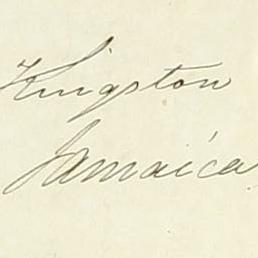 Kingston
Jamaica